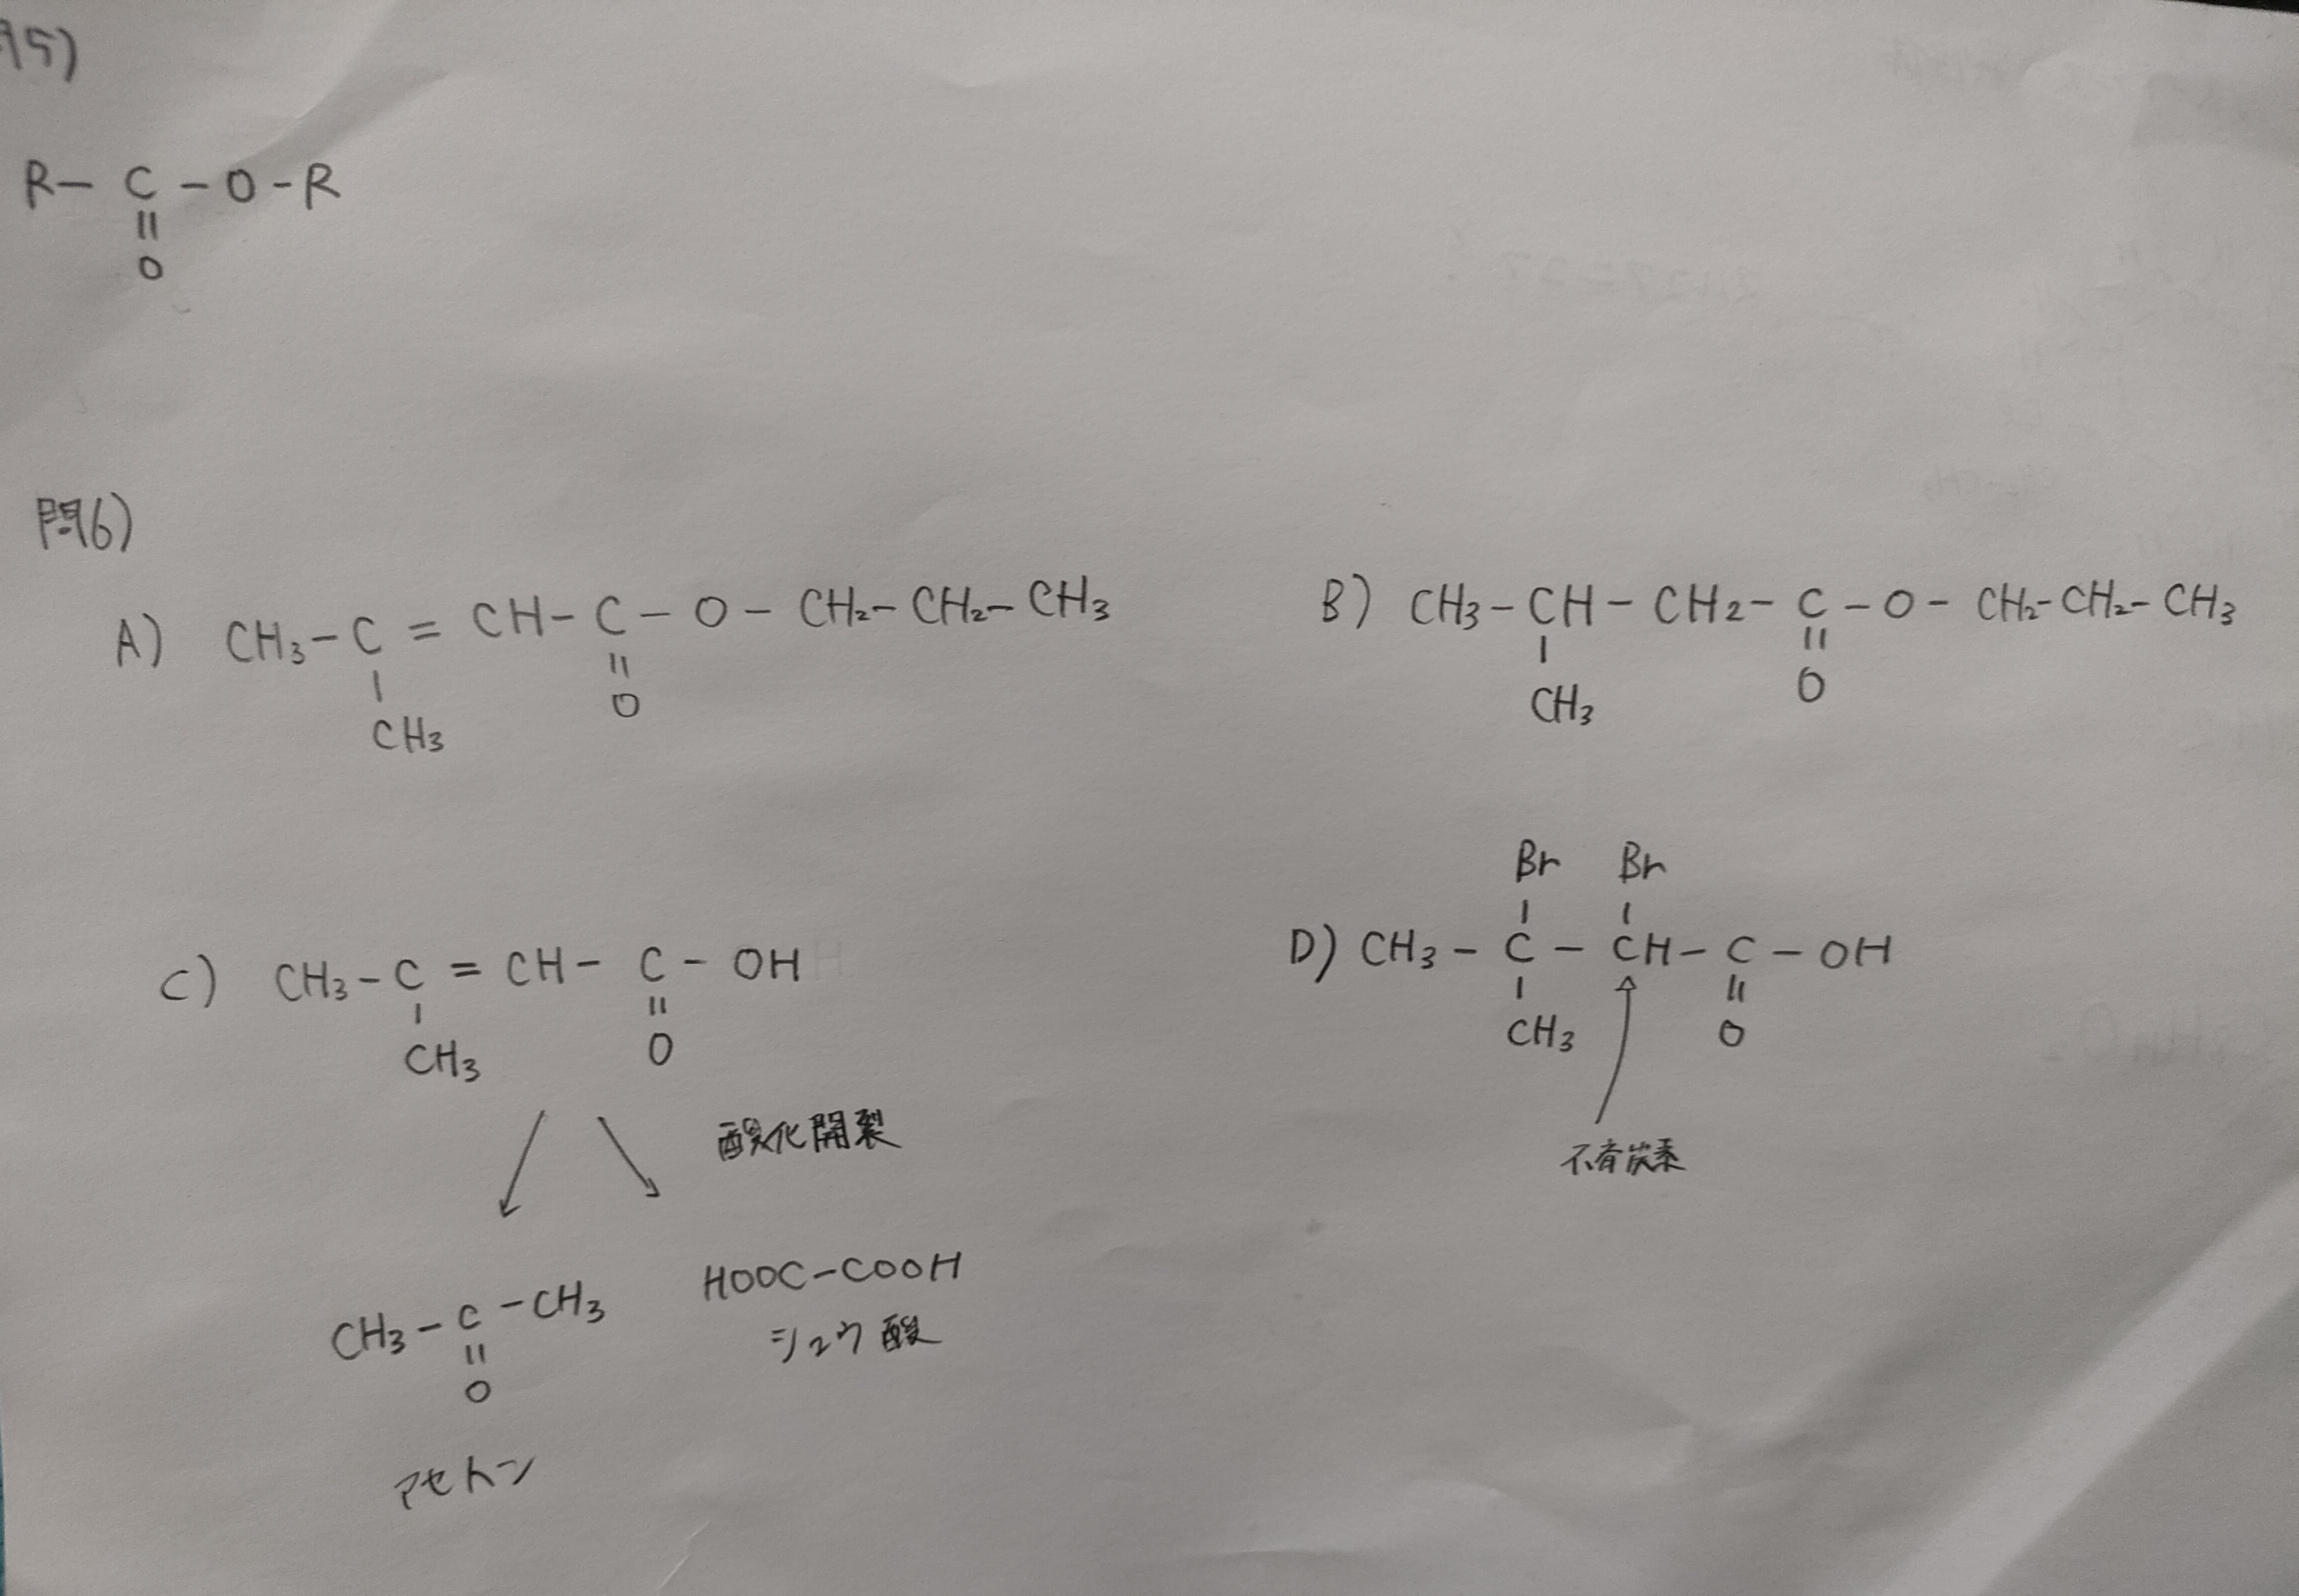 問5)
R－C－O－R
||
O
問6)
A) CH₃－C＝CH－C－O－CH₂－CH₂－CH₃
| ||
CH₃ O
B) CH₃－CH－CH₂－C－O－CH₂－CH₂－CH₃
| ||
CH₃ O
C) CH₃－C＝CH－C－OH
| ||
CH₃ O
酸化開裂
CH₃－C－CH₃
||
O
アセトン
HOOC－COOH
シュウ酸
Br Br
| |
D) CH₃－C－CH－C－OH
| ||
CH₃ O
不斉炭素